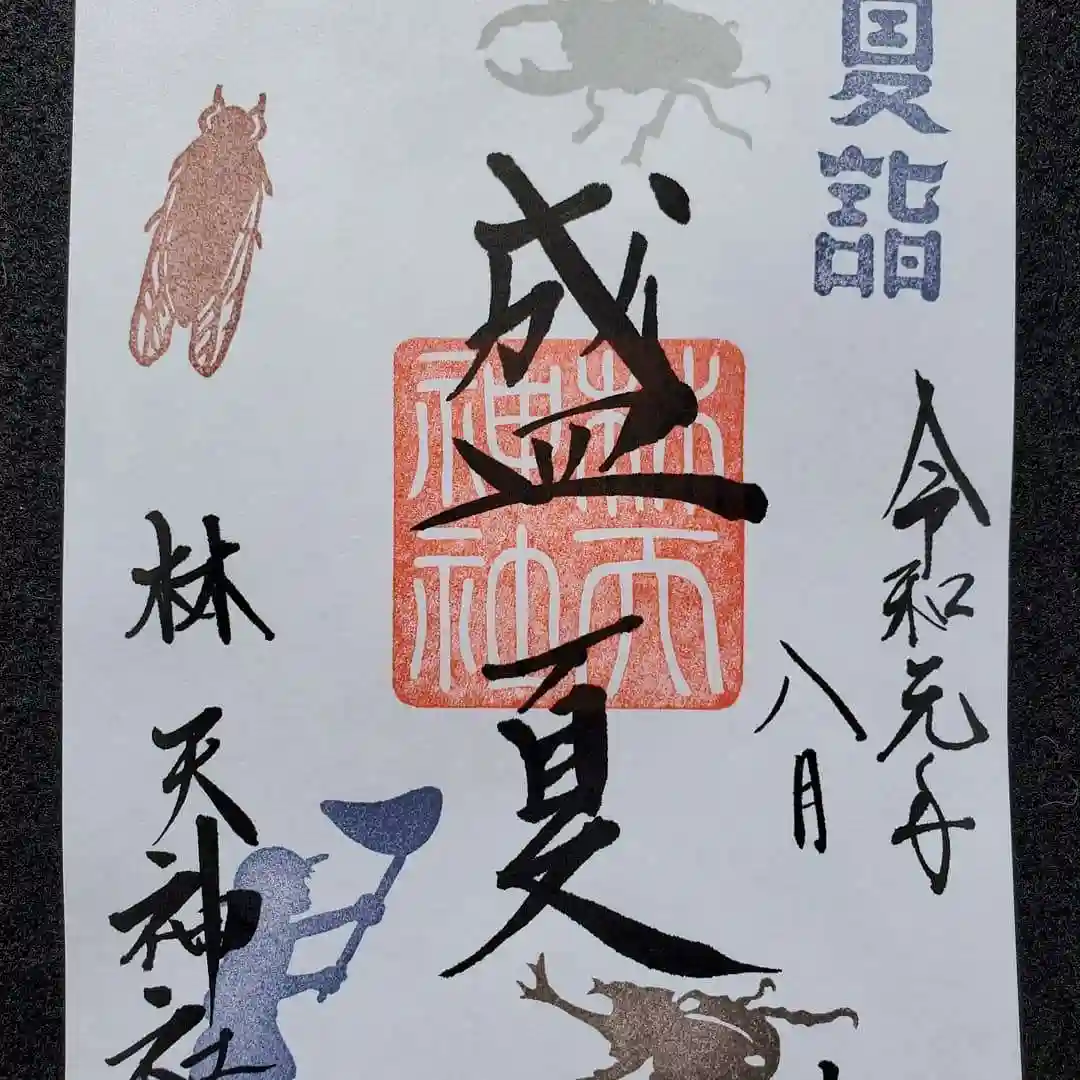 夏詣
令和元年
八月
盛夏
林天神社
林天神社